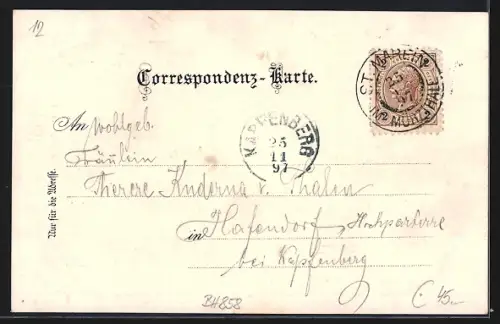 12
Correspondenz-Karte.
ST. MAREIN
IM MÜRZTHALE
An Wohlgeb.
KAPFENBERG
25
11
97
Fräulein
Therese v. Thalen
in Hafendorf Hochparterre
bei Kapfenberg
Nur für die Adresse.
BH858
€ 45.-